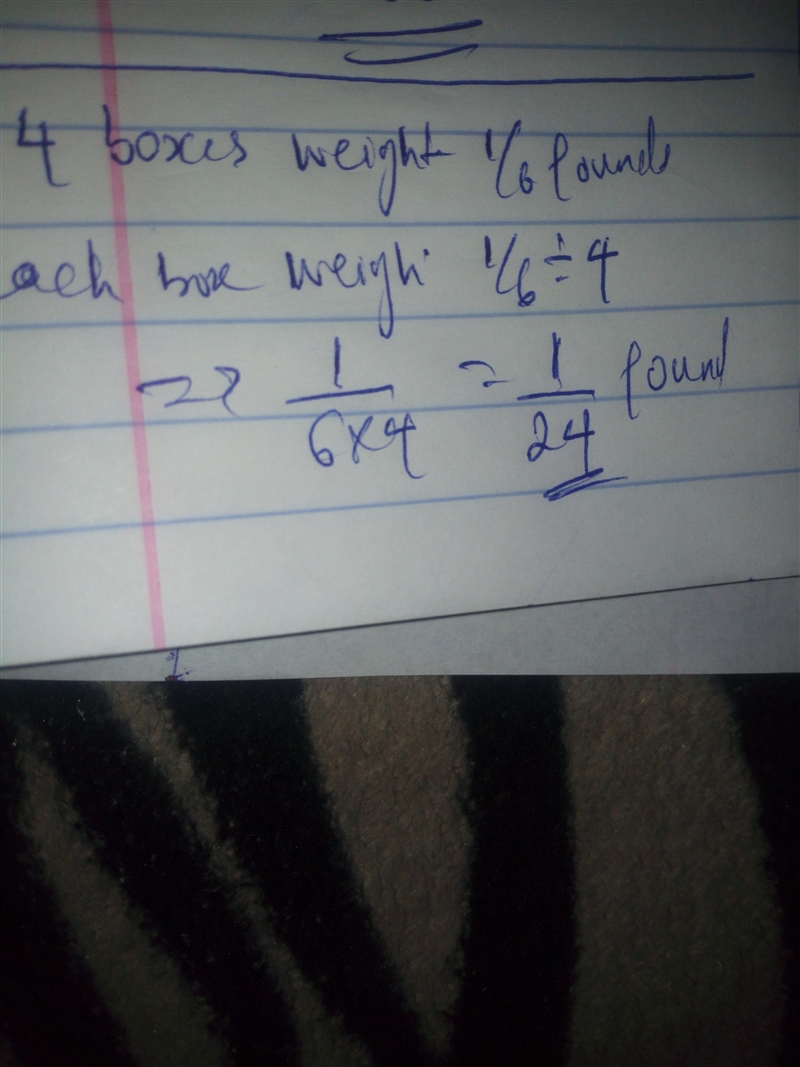 4 boxes weight 1/6 pounds
each box weigh 1/6 ÷ 4
=> 1/6×4 = 1/24 pound